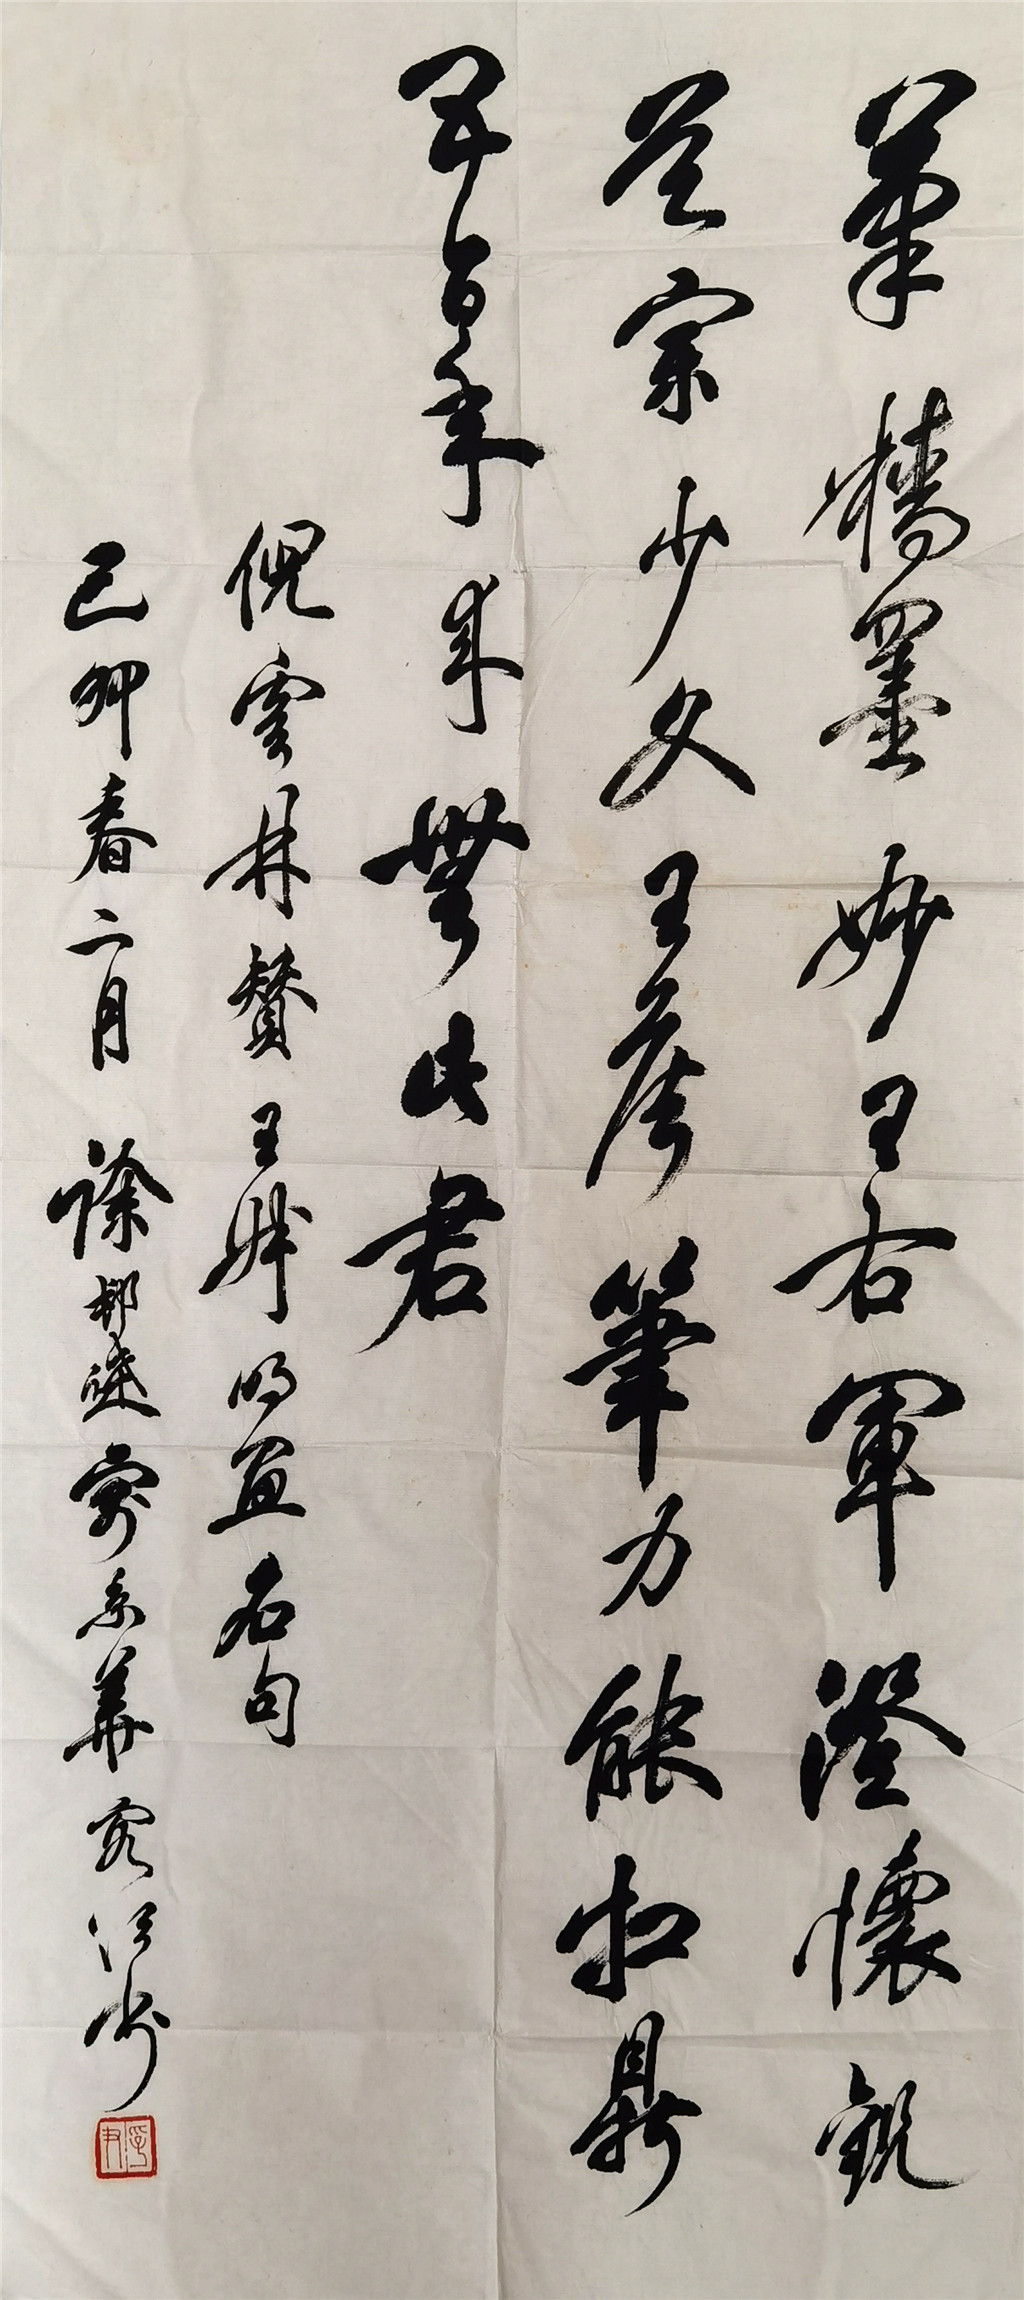 筆精墨妙王右軍澄懷觀
道宗少文王侯筆力能扛鼎
五百年来無此君
倪雲林贊王叔明画名句
己卯春二月 徐邦達